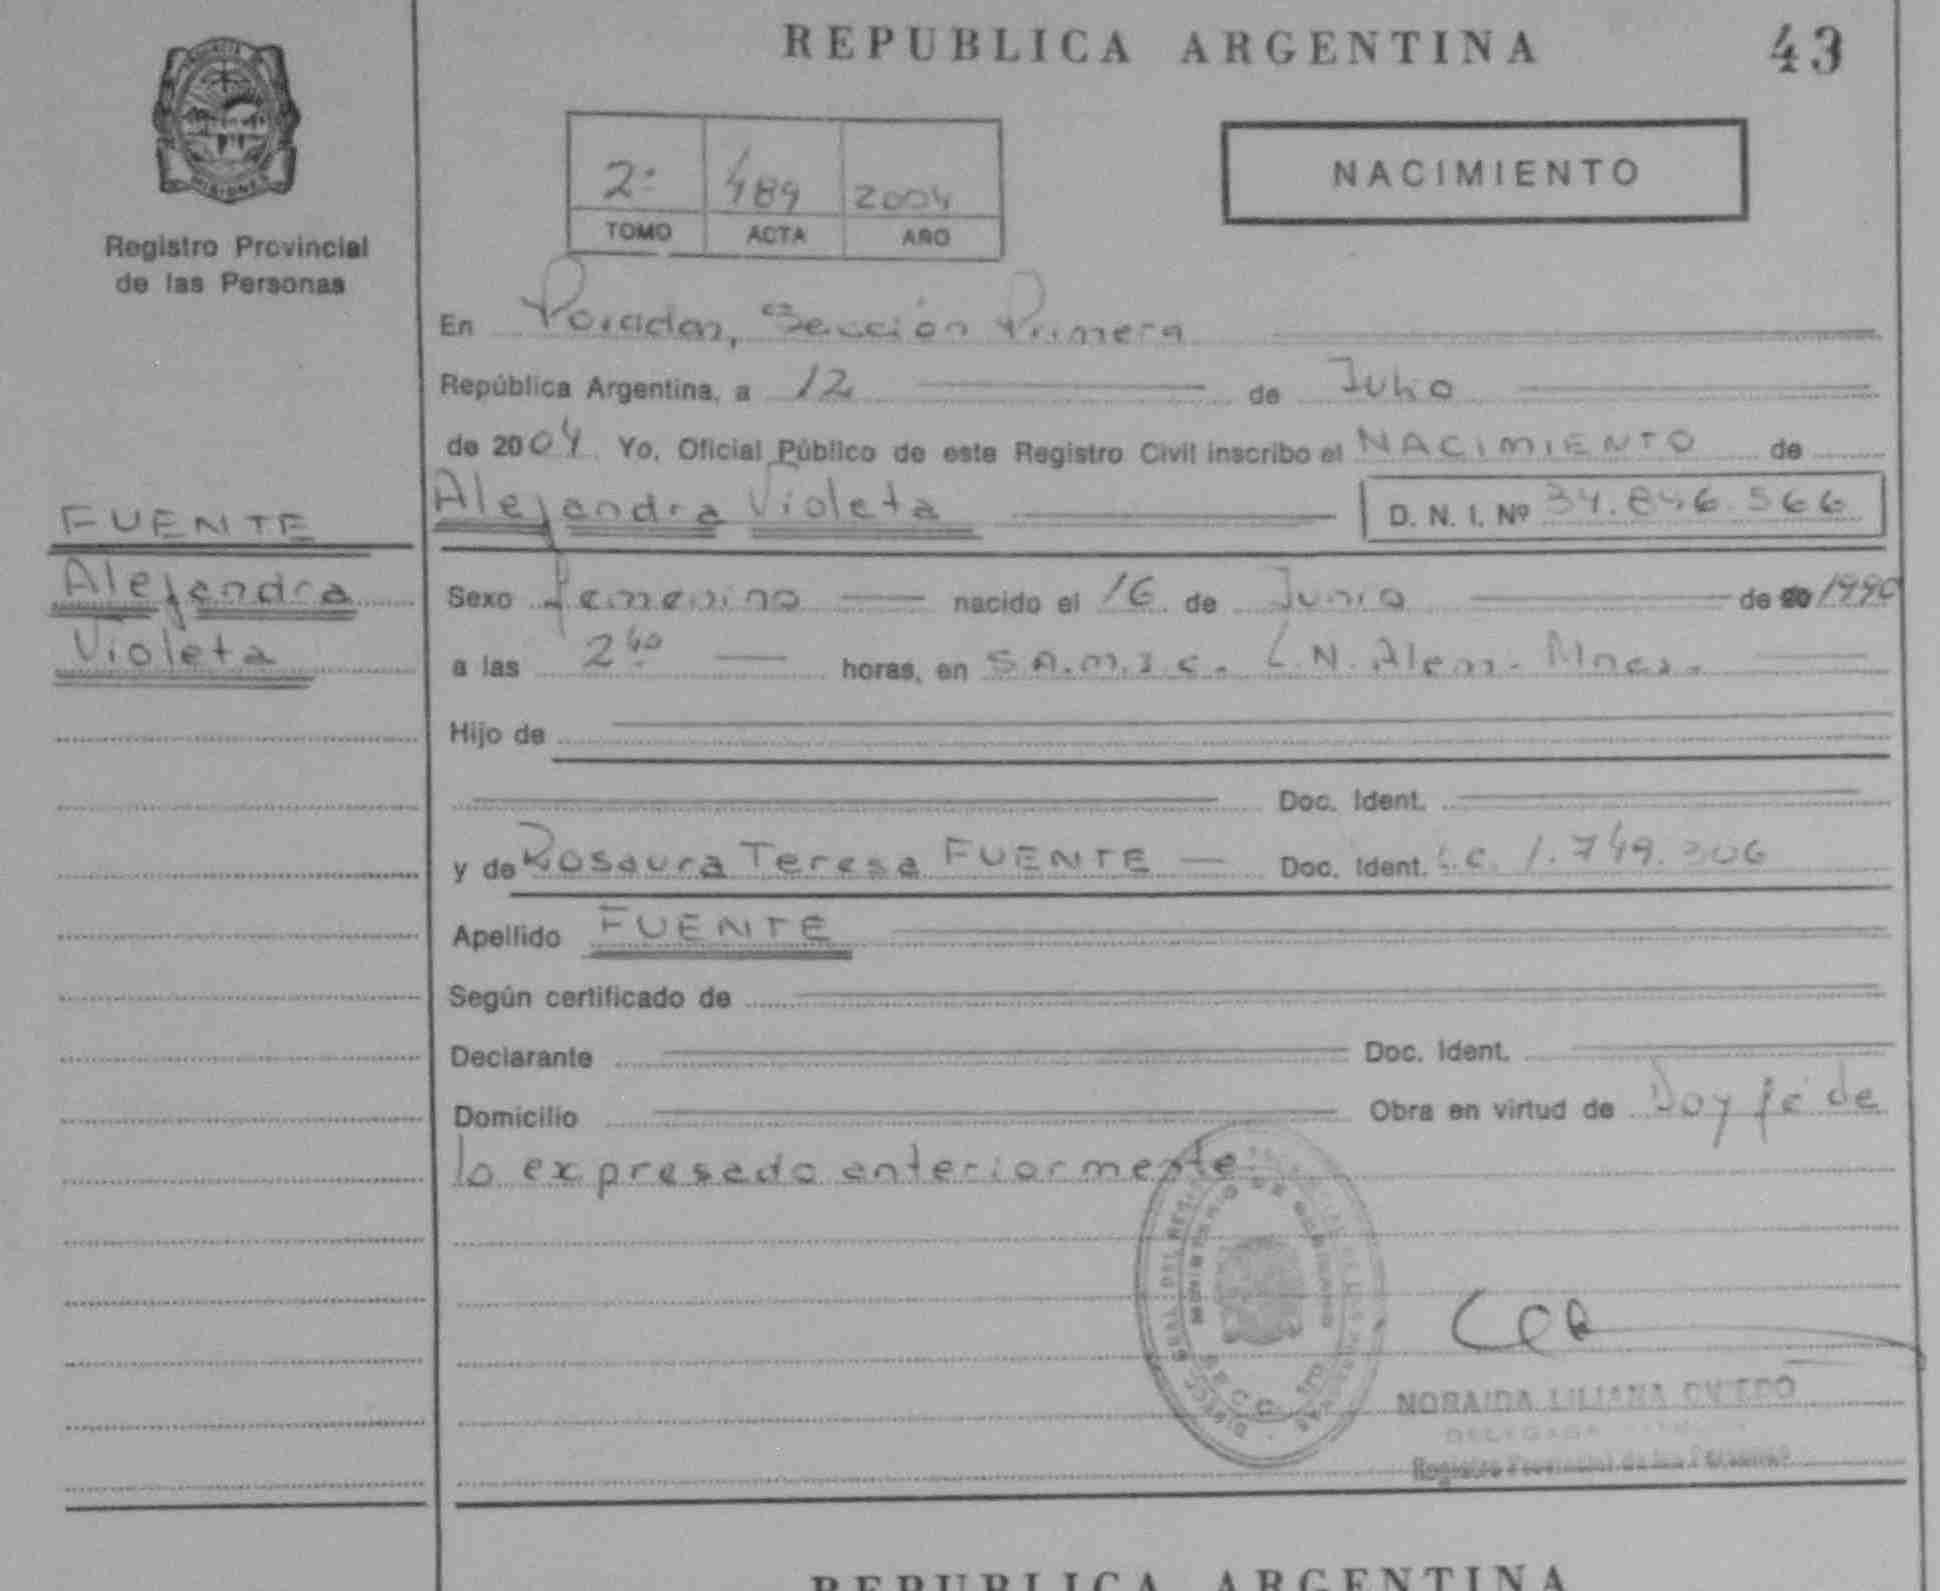 REPUBLICA ARGENTINA
43
MISIONES
Registro Provincial
de las Personas
2º 489 2004
TOMO ACTA AÑO
NACIMIENTO
En Posadas, Sección Primera
República Argentina, a 12 de Julio
de 2004 Yo, Oficial Público de este Registro Civil inscribo el NACIMIENTO de
Alejandra Violeta D. N. I. Nº 34.846.566
FUENTE
Alejandra
Violeta
Sexo femenino nacido el 16 de Junio de 20 1990
a las 2 40 horas, en S.A.M.I.C. L.N. Alem - Mnes.
Hijo de
Doc. Ident.
y de Rosaura Teresa FUENTE Doc. Ident. L.C. 1.749.306
Apellido FUENTE
Según certificado de
Declarante Doc. Ident.
Domicilio Obra en virtud de Doy fé de
lo expresado anteriormente
MINISTERIO DE GOBIERNO
NORAIDA LILIANA OVIEDO
DELEGADA
Registro Provincial de las Personas
REPUBLICA ARGENTINA